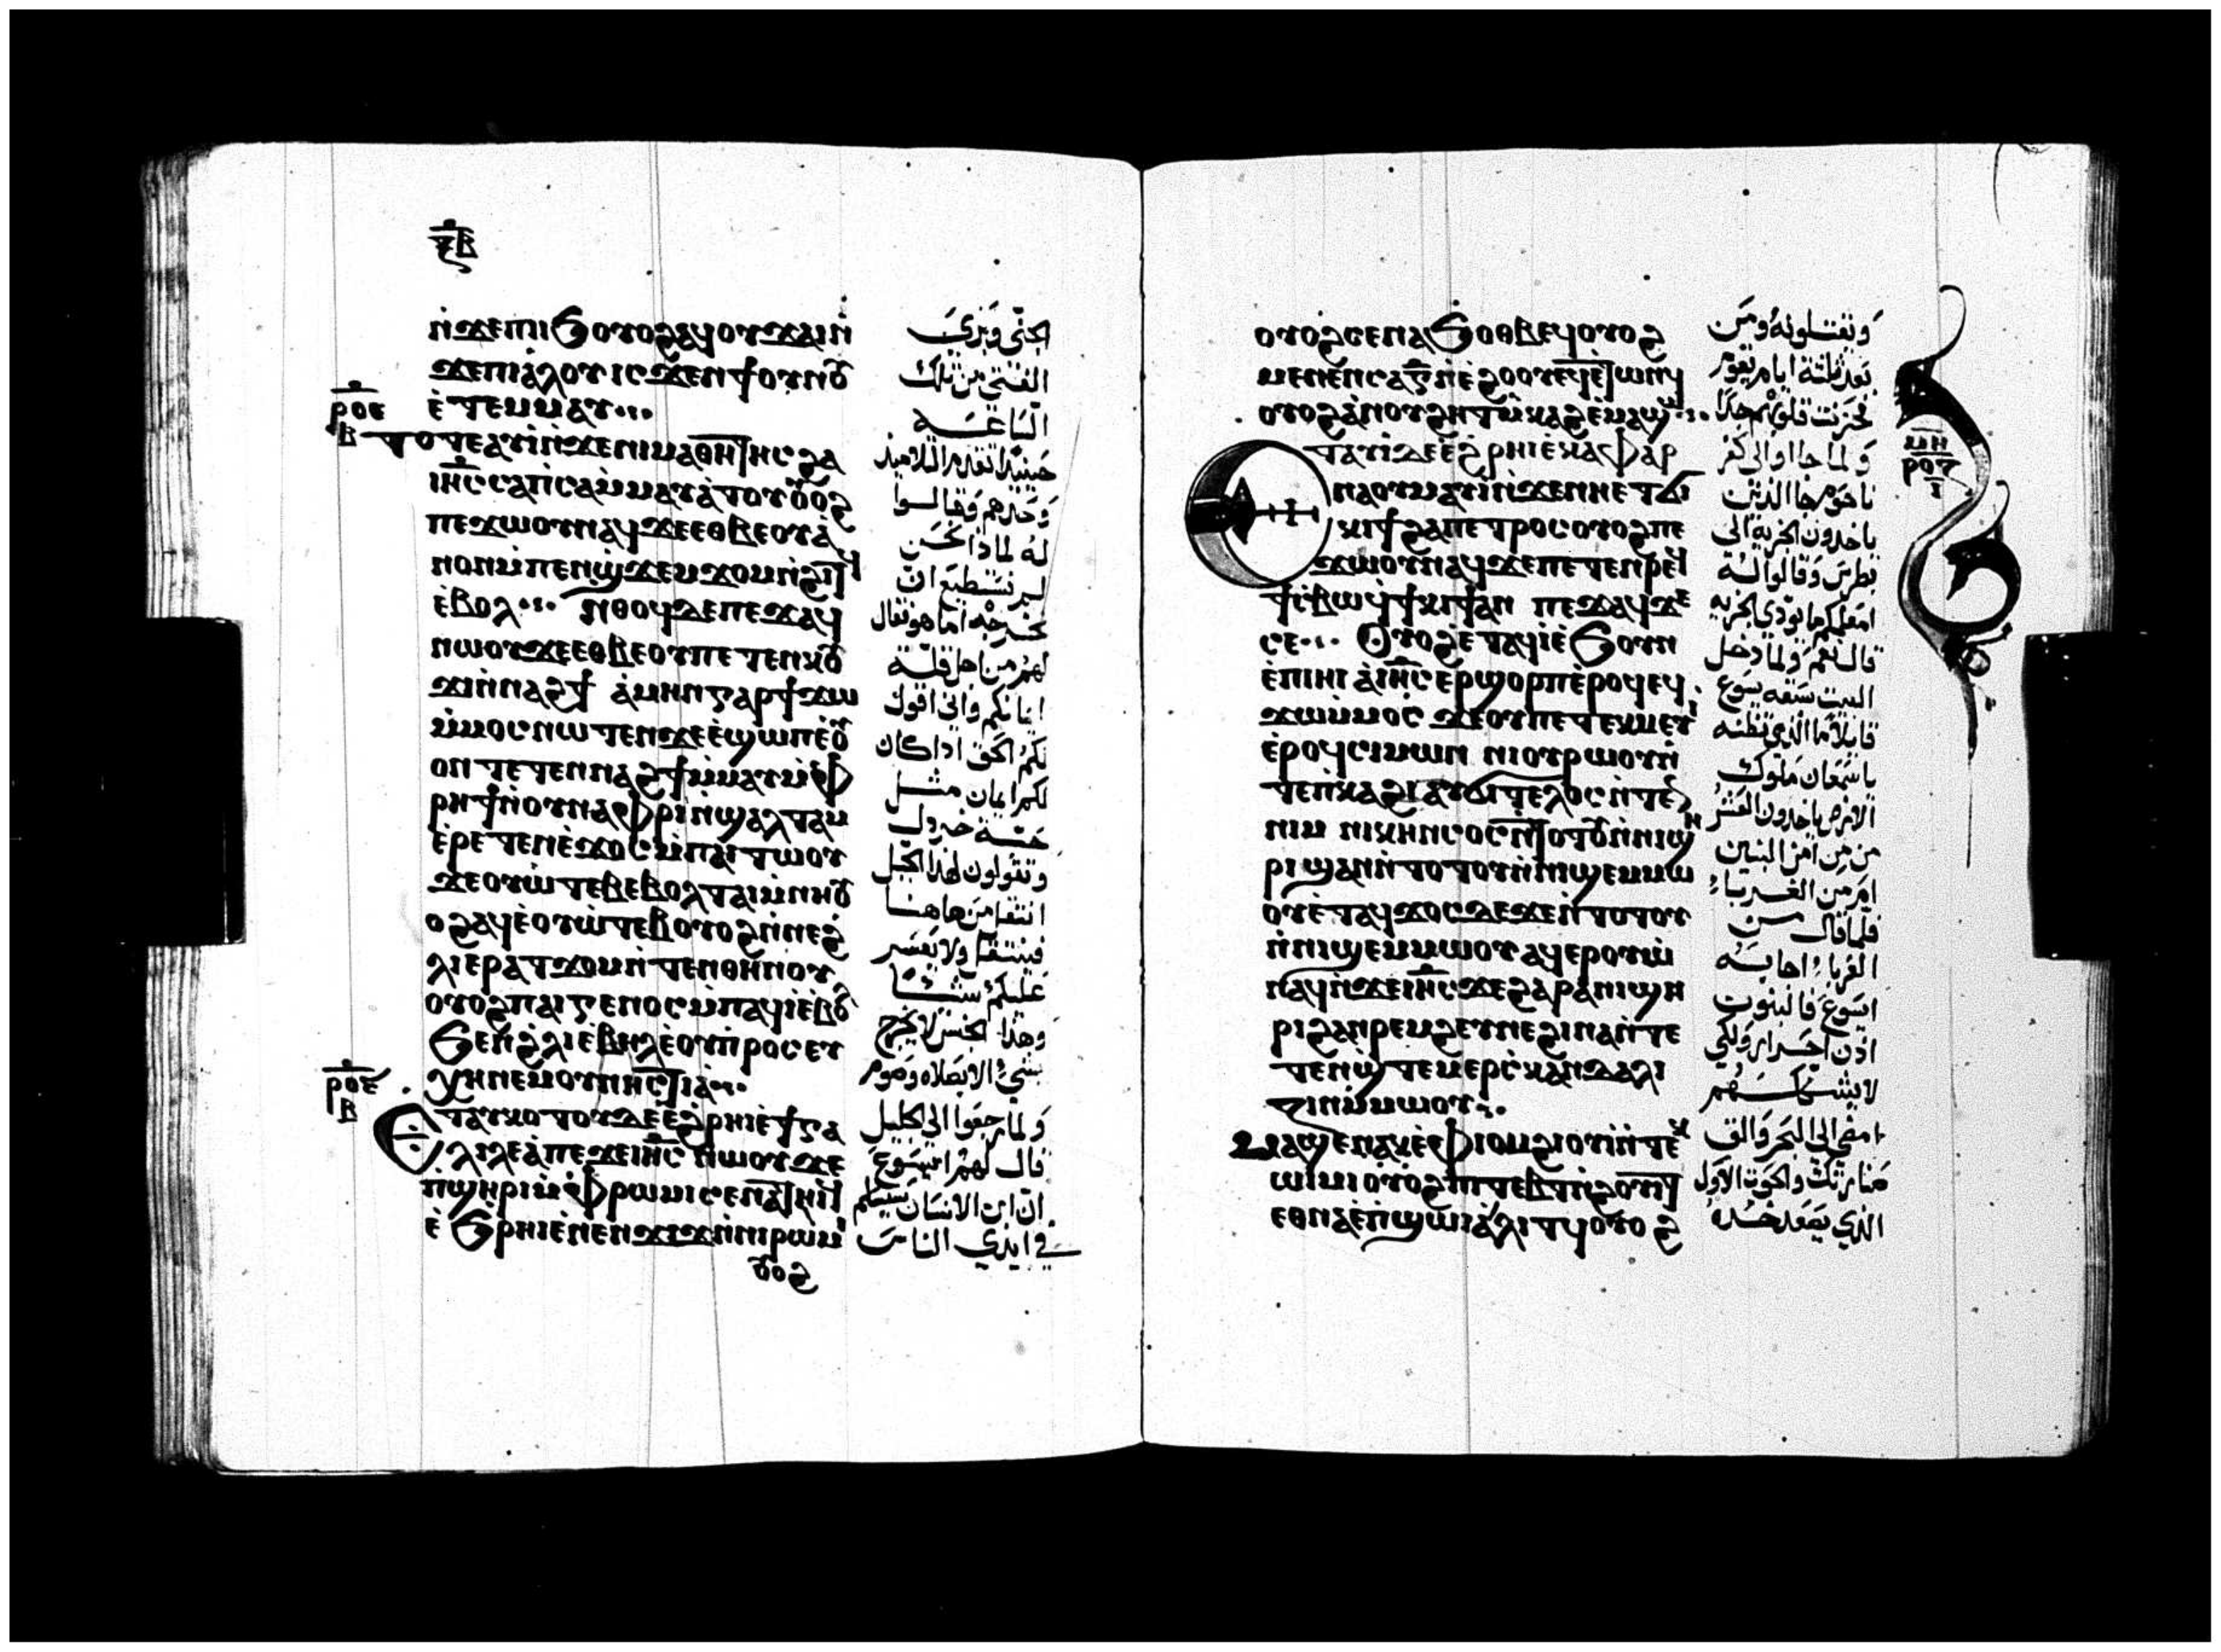 ⲝ̅ⲃ̅
ⲛ̀ϫⲉⲡⲓⲓϧ ⲟⲩⲟϩⲁϥⲟⲩϫⲁⲓⲛ̀
ϫⲉⲡⲓⲁ̀ⲗⲟⲩ ⲓⲥϫⲉⲛϯⲟⲩⲛⲟⲩ
ⲉ̀ⲧⲉⲙⲙⲁⲩ
ⲣⲟⲉ
ⲃ
Ⲧⲟⲧⲉⲁⲩⲓ̀ⲛ̀ϫⲉⲛⲓⲙⲁⲑⲏⲧⲏⲥϩⲁ
ⲓⲏ̅ⲥ̅ⲥⲁⲡ̀ⲥⲁⲙ̀ⲙⲁⲩⲁ̀ⲧⲟⲩ ⲟⲩⲟϩ
ⲡⲉϫⲱⲟⲩⲛⲁϥϫⲉⲉⲑⲃⲉⲟⲩⲁ̀
ⲛⲟⲛⲙ̀ⲡⲉⲛϣ̀ϫⲉⲙϫⲟⲙⲛ̀ϩⲓⲧϥ
ⲉ̀ⲃⲟⲗ Ⲛ̀ⲑⲟϥⲇⲉⲡⲉϫⲁϥ
ⲛⲱⲟⲩϫⲉⲉⲑⲃⲉⲟⲩⲡⲉⲧⲉⲛⲕⲟⲩ
ϫⲓⲛ̀ⲛⲁϩϯ ⲁ̀ⲙⲏⲛⲅⲁⲣϯϫⲱ
ⲙ̀ⲙⲟⲥⲛⲱⲧⲉⲛϫⲉⲉ̀ϣⲱⲡⲉ̀ⲟⲩ
ⲟⲛⲧⲉⲧⲉⲛⲛⲁϩϯⲙ̀ⲙⲁⲩⲙ̀ⲫ
ⲣⲏϯⲛ̀ⲟⲩⲛⲁⲫⲣⲓⲛ̀ϣⲁⲗⲧⲁⲙ
ⲉ̀ⲣⲉⲧⲉⲛⲉ̀ϫⲟⲥⲙ̀ⲡⲁⲓⲧⲱⲟⲩ
ϫⲉⲟⲩⲱ̀ⲧⲉⲃⲉⲃⲟⲗⲧⲁⲓⲙ̀ⲛⲏⲟⲩ
ⲟϩⲁϥⲉ̀ⲟⲩⲱ̀ⲧⲉⲃⲟⲩⲟϩⲛ̀ⲛⲉϩ̀
ⲗⲓⲉⲣⲁⲧϫⲟⲙⲛ̀ⲧⲉⲛⲑⲏⲛⲟⲩ
ⲟⲩⲟϩⲡⲁⲓⲅⲉⲛⲟⲥⲙ̀ⲡⲁϥⲓ̀ⲉ̀ⲃⲟ
ϧⲉⲛϩ̀ⲗⲓⲉ̀ⲃⲏⲗⲉ̀ⲟⲩⲡ̀ⲣⲟⲥⲉⲩ
ⲭⲏⲛⲉⲙⲟⲩⲛⲏⲥⲧⲓⲁ̀
ⲣⲟⲋ
ⲃ
Ⲉⲧⲁⲩⲕⲟⲧⲟⲩⲇⲉⲉ̀ϩ̀ⲣⲏⲓⲉ̀ϯⲅⲁ
ⲗⲓⲗⲉⲁ̀ⲡⲉϫⲉⲓⲏ̅ⲥ̅ⲛⲱⲟⲩϫⲉ
ⲡ̀ϣⲏⲣⲓⲙ̀ⲫⲣⲱⲙⲓⲥⲉⲛⲁⲧⲏⲓϥ
ⲉ̀ϧⲣⲏⲓⲉ̀ⲛⲉⲛϫⲓϫⲛ̀ⲛⲓⲣⲱⲙⲓ
ⲟⲩⲟϩ
الجني وبرى
الفتى من تلك
الساعـــة
حينيذ تقدم التلاميذ
وحدهم وقالـوا
له لماذا نحن
لم نستطيع ان
نخرجه اما هو فقال
لهم من اجل قلـة
ايمانكم واني اقول
لكم الحق اذا كان
لكم ايمان مثـل
حبـة خردول
وتقولون لهذا الجبل
انتقل من هاهنـا
فينتقل ولا يعسر
عليكم شيـا
وهذا الجنس لا يخرج
بشي الا بصلاه وصوم
ولما رجعوا الى الجليل
قال لهم ايسوع
ان ابن الانسان سيسلم
في ايدي الناس
ⲟⲩⲟϩⲥⲉⲛⲁϧⲟⲑⲃⲉϥⲟⲩⲟϩ
ⲙⲉⲛⲉⲛⲥⲁⲅⲛ̀ⲉ̀ϩⲟⲟⲩⲉϥⲉ̀ⲧⲱⲛϥ
ⲟⲩⲟϩⲁ̀ⲡⲟⲩϩⲏⲧⲙ̀ⲕⲁϩⲉⲙⲁϣⲱ
Ⲉⲧⲁⲩⲓ̀ⲇⲉⲉ̀ϩ̀ⲣⲏⲓⲉ̀ⲕⲁⲫⲁⲣ
ⲛⲁⲟⲩⲙⲁⲩⲓ̀ⲛ̀ϫⲉⲛⲏⲉⲧϭⲓ
ⲕⲓϯϩⲁⲡⲉⲧⲣⲟⲥⲟⲩⲟϩⲡⲉ
ϫⲱⲟⲩⲛⲁϥϫⲉⲡⲉⲧⲉⲛⲣⲉϥ
ϯⲥ̀ⲃⲱϥ̀ϯⲕⲓϯⲁⲛ ⲡⲉϫⲁϥϫⲉ
ⲥⲉ Ⲟⲩⲟϩⲉ̀ⲧⲁϥⲓ̀ⲉ̀ϧⲟⲩⲛ
ⲉ̀ⲡⲓⲏⲓ ⲁ̀ⲓⲏ̅ⲥ̅ⲉⲣϣⲟⲣⲡⲉ̀ⲣⲟϥⲉϥ
ϫⲱⲙ̀ⲙⲟⲥ ϫⲉⲟⲩⲡⲉⲧⲉⲕⲙⲉⲩⲓ
ⲉ̀ⲣⲟϥⲥⲓⲙⲱⲛ ⲛⲓⲟⲩⲣⲱⲟⲩⲛ̀
ⲧⲉⲡ̀ⲕⲁϩⲓⲁⲩϭⲓⲧⲉⲗⲟⲥⲛ̀ⲧⲉⲛ
ⲛⲓⲙ ⲛⲓⲕⲏⲛⲥⲟⲥⲛ̀ⲧⲟⲧⲟⲩⲛ̀ⲛⲓϣⲏ
ⲣⲓϣⲁⲛⲛ̀ⲧⲟⲧⲟⲩⲛ̀ⲛⲓϣⲉⲙⲙⲱ
ⲟⲩⲉ̀ⲧⲁϥϫⲟⲥⲇⲉϫⲉⲛ̀ⲧⲟⲧⲟⲩ
ⲛ̀ⲛⲓϣⲉⲙⲙⲱⲟⲩ ⲁϥⲉⲣⲟⲩⲱ̀
ⲛⲁϥⲛ̀ϫⲉⲓⲏ̅ⲥ̅ϫⲉϩⲁⲣⲁⲛⲓϣⲏ
ⲣⲓϩⲁⲛⲣⲉⲙϩⲉⲩⲛⲉϩⲓⲛⲁⲛ̀ⲧⲉ
ⲧⲉⲛϣ̀ⲧⲉⲙⲉⲣⲥ̀ⲕⲁⲛⲇⲁⲗⲓ
ⲍⲓⲛⲙ̀ⲙⲱⲟⲩ
Ⲙⲁϣⲉⲛⲁⲕⲉ̀ⲫⲓⲟⲙϩⲓⲟⲩⲓ̀ⲛ̀ⲧⲉⲕ
ⲱⲓⲙⲓⲟⲩⲟϩⲡⲓⲧⲉⲃⲧⲛ̀ϩⲟⲩⲓⲧ
ⲉⲑⲛⲁⲉ̀ⲡ̀ϣⲱⲓⲁ̀ⲗⲓⲧϥⲟⲩⲟϩ
ويقتلونه ومن
بعد ثلثة ايام يقوم
فحزنت قلوبهم جدا
ولما جاوا الى كفر
ناحوم جا الذين
ياخدون الجزية الى
بطرس وقالوا لـه
امعلمكم ما يودي الجزيه
قال نعم ولما دخل
البيت سبقه يسوع
قايلا ما الذي تظنه
ياسمعان ملوك
الارض ياخدون العشر
من من امن البنين
ام من الغـربا
فلما قال مـن
الغربا اجابـه
ايسوع فالبنون
اذن احـرار ولكي
لا يشككهم
امضى الى البحر والق
صنارتك والحوت الاول
الذي يصعد خـده
ⲙⲏ
ⲣⲟⲍ
ⲓ